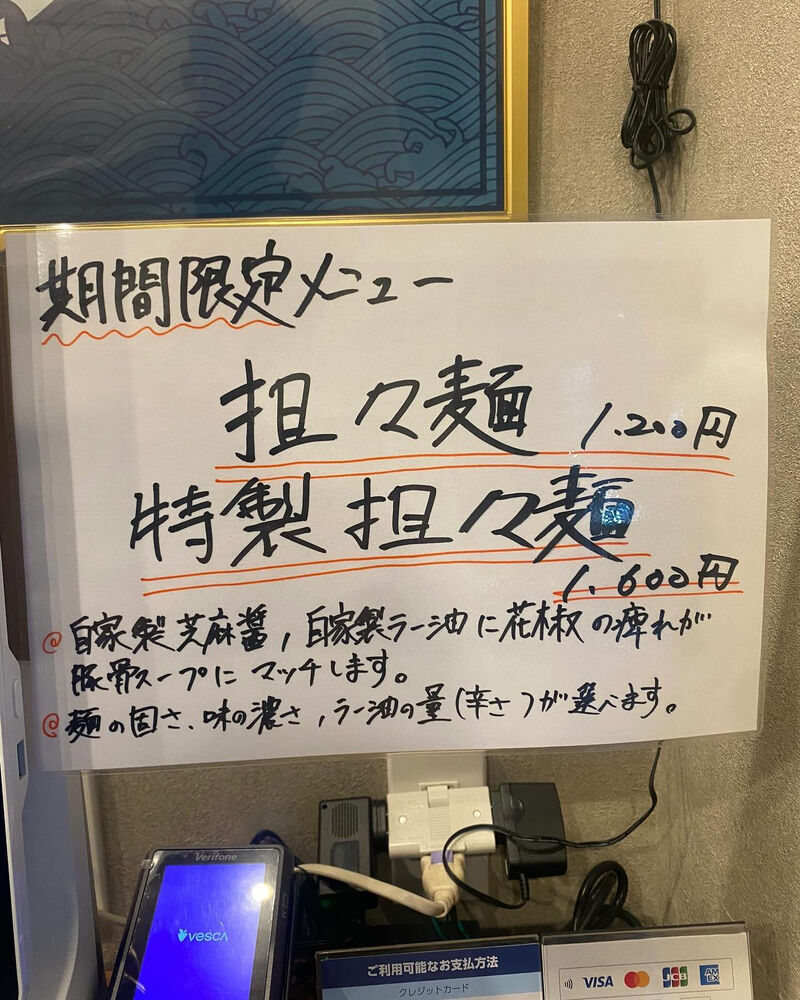 期間限定メニュー
担々麺 1.200円
特製担々麺
1.600円
@ 自家製芝麻醤,自家製ラー油に花椒の痺れが
豚骨スープにマッチします。
@ 麺の固さ、味の濃さ,ラー油の量(辛さ)が選べます。
Verifone
VESCA
ご利用可能なお支払方法
クレジットカード
VISA
JCB
AM
EX